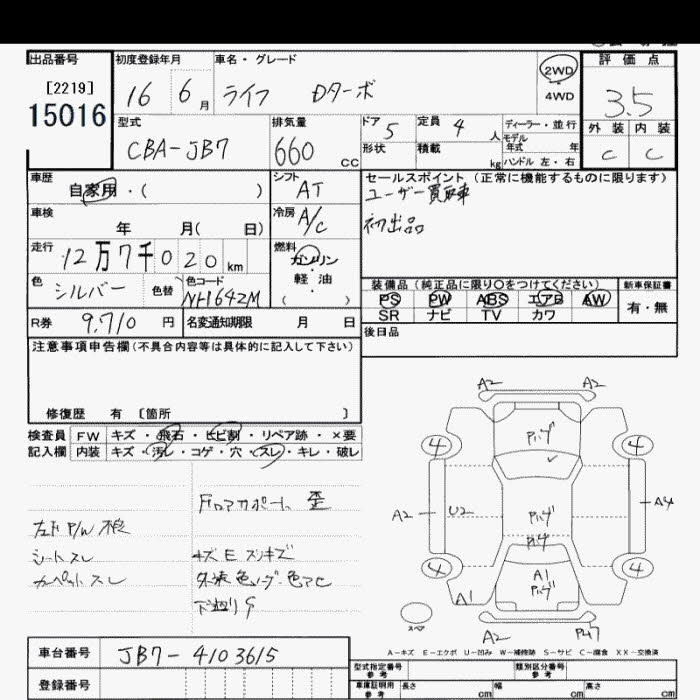 出品番号 初度登録年月 車名・グレード 評価点
[2219] 2WD
15016 16 6月 ライフ Dターボ ・4WD 3.5
型式 排気量 ドア 5 定員 4人 ディーラー・並行 外装 内装
CBA-JB7 660cc モデル年式 年
形状 積載 kg ハンドル 左・右 C C
車歴 シフト セールスポイント (正常に機能するものに限ります)
自家用・( ) AT ユーザー買取車
車検 冷房 初出品
年 月( 日) A/C
走行 燃料
12万7千020km ガソリン
色 シルバー 色替 色コード 軽・油 装備品 (純正品に限り〇をつけてください) 新車保証書
NH642M ( ) PS PW ABS エアB AW 有・無
SR ナビ TV カワ
R券 9,710 円 名変通知期限 月 日 後日品
注意事項申告欄 (不具合内容等は具体的に記入して下さい)
修復歴 有 〔箇所 〕
検査員 FW キズ・飛石・ヒビ割・リペア跡・×要
記入欄 内装 キズ・汚レ・コゲ・穴・スレ・キレ・破レ
フロアサポート 歪
左ドP/W不良
シートスレ キズE スリキズ
カーペットスレ
下廻りS
A2 A2
Pハゲ
4 4
A2 U2 Pハゲ A4
4 4
A1
Pハゲ
A1
スペア
A2
A-キズ E-エクボ U-凹み W-補修跡 S-サビ C-腐食 XX-交換済
車台番号 JB7-4103615
型式指定番号 参考 類別区分番号 参考
登録番号 車庫証明用 参考 長さ cm 幅 cm 高さ cm